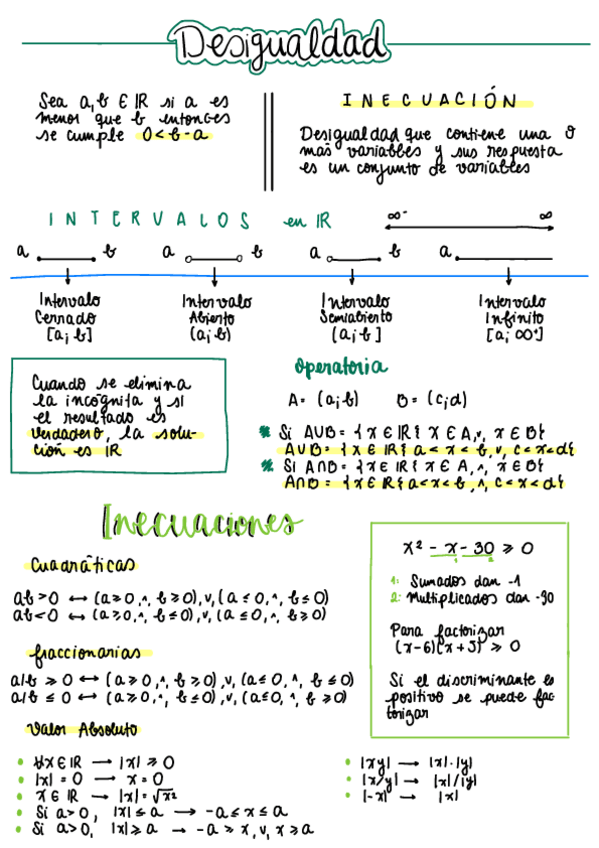 Desigualdad
Sea a,b ∈ IR si a es
menor que b entonces
se cumple 0 < b - a
INECUACIÓN
Desigualdad que contiene una o
más variables y sus respuesta
es un conjunto de variables
INTERVALOS en IR
∞- ∞
a b a b a b a
Intervalo
Cerrado
[a;b]
Intervalo
Abierto
(a;b)
Intervalo
Semiabierto
(a;b]
Intervalo
Infinito
[a; ∞+]
Cuando se elimina
la incógnita y si
el resultado es
verdadero, la solu-
ción es IR
Operatoria
A = (a;b) B = (c;d)
* Si A∪B = {x ∈ IR{ x ∈ A,v, x ∈ B}
A∪B = {x ∈ IR{ a < x < b,v, c < x < d}
* Si A∩B = {x ∈ IR{ x ∈ A,^, x ∈ B}
A∩B = {x ∈ IR{ a < x < b,^, c < x < d}
Inecuaciones
Cuadráticas
ab > 0 ↔ (a ≥ 0,^, b ≥ 0),v,(a ≤ 0,^, b ≤ 0)
ab < 0 ↔ (a ≥ 0,^, b ≤ 0),v,(a ≤ 0,^, b ≥ 0)
fraccionarias
a/b ≥ 0 ↔ (a ≥ 0,^, b ≥ 0),v,(a ≤ 0,^, b ≤ 0)
a/b ≤ 0 ↔ (a ≥ 0,^, b ≤ 0),v,(a ≤ 0,^, b ≥ 0)
x² - x - 30 ≥ 0
1 2
1: Sumados dan -1
2: Multiplicados dan -30
Para factorizar
(x-6)(x+5) ≥ 0
Si el discriminante es
positivo se puede fac
torizar
Valor Absoluto
• ∀x ∈ IR → |x| ≥ 0
• |x| = 0 → x = 0
• x ∈ IR → |x| = √x²
• Si a > 0, |x| ≤ a → -a ≤ x ≤ a
• Si a > 0, |x| ≥ a → -a ≥ x,v, x ≥ a
• |xy| → |x|·|y|
• |x/y| → |x|/|y|
• |-x| → |x|